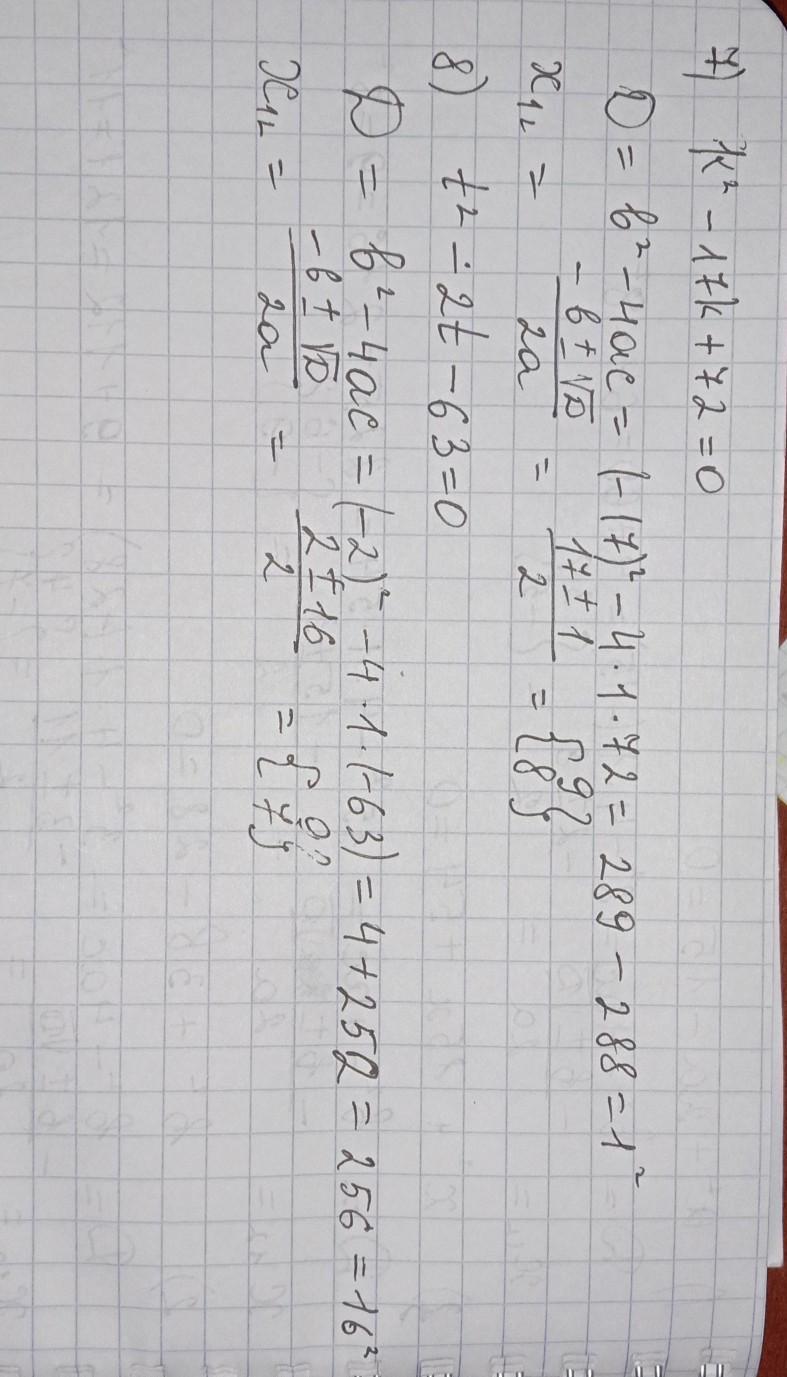 7) k² - 17k + 72 = 0
D = b² - 4ac = (-17)² - 4·1·72 = 289 - 288 = 1²
x₁₂ = (-b ± √D)/2a = (17 ± 1)/2 = {9 8}
8) t² - 2t - 63 = 0
D = b² - 4ac = (-2)² - 4·1·(-63) = 4 + 252 = 256 = 16²
x₁₂ = (-b ± √D)/2a = (2 ± 16)/2 = {9 7}